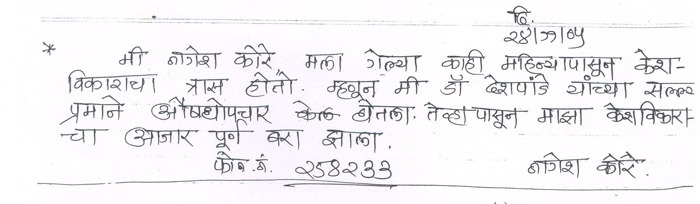 दि.
२४/७/०५
* मी नागेश कोरे मला गेल्या काही महिन्यापासून केश-
विकाराचा त्रास होतो. म्हणून मी डॉ देशपांडे यांच्या सल्ल्या
प्रमाने औषधोपचार केला होतला. तेव्हापासून माझा केशविकारा-
चा आजार पूर्ण बरा झाला.
फोन.नं. २५४२३३ नागेश कोरे.